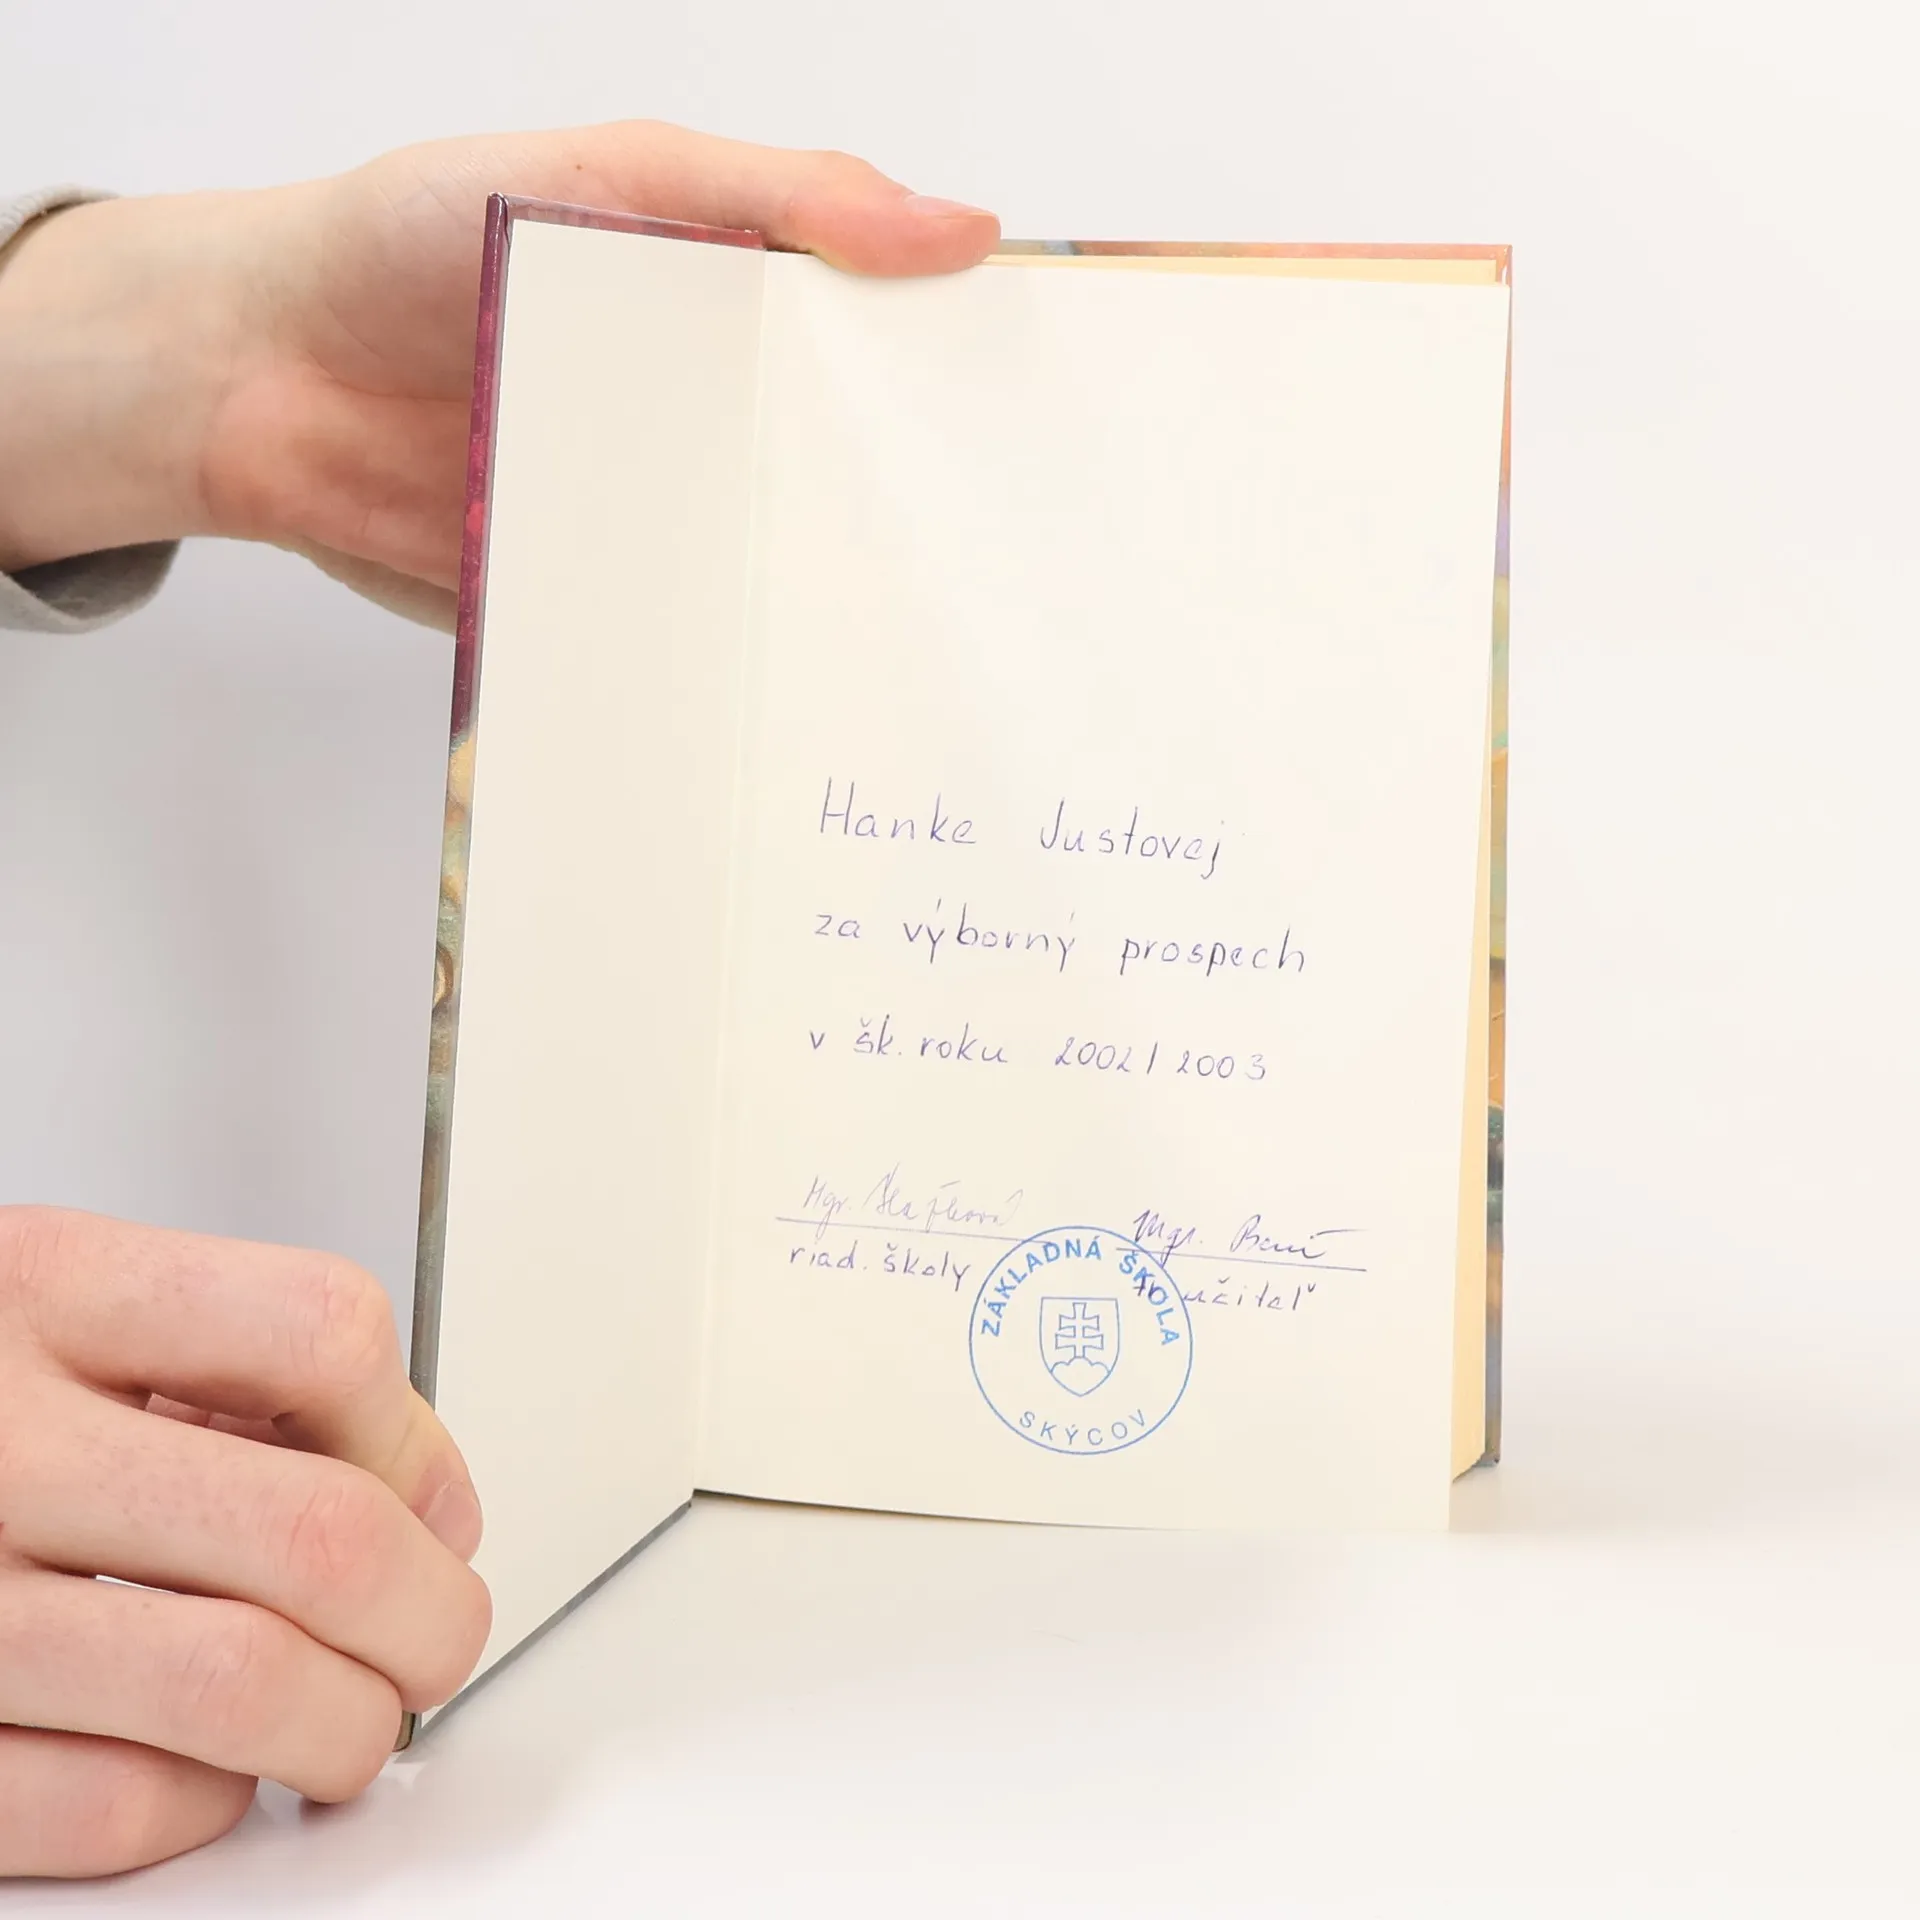 Hanke Justovej
za výborný prospech
v šk. roku 2002/2003
Mgr.
Mgr.
riad. školy
tr. učiteľ
ZÁKLADNÁ ŠKOLA
SKÝCOV